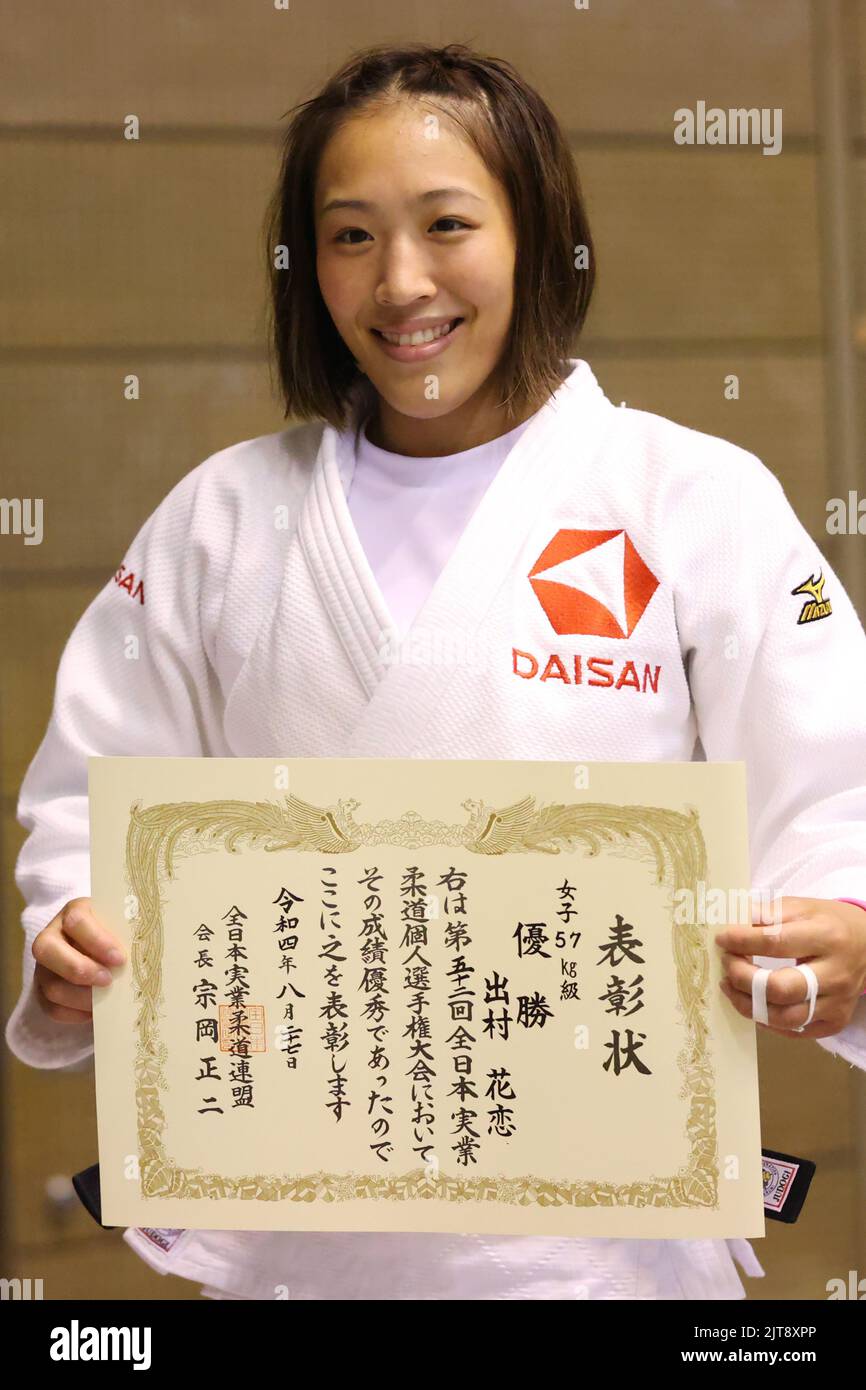 DAISAN
MIZUNO
表彰状
女子57㎏級
優勝
出村 花恋
右は第五十二回全日本実業
柔道個人選手権大会において
その成績優秀であったので
ここに之を表彰します
令和四年八月二十七日
全日本実業柔道連盟
会長 宗岡正二
JUDOGI
alamy
Image ID: 2JT8XPP
www.alamy.com